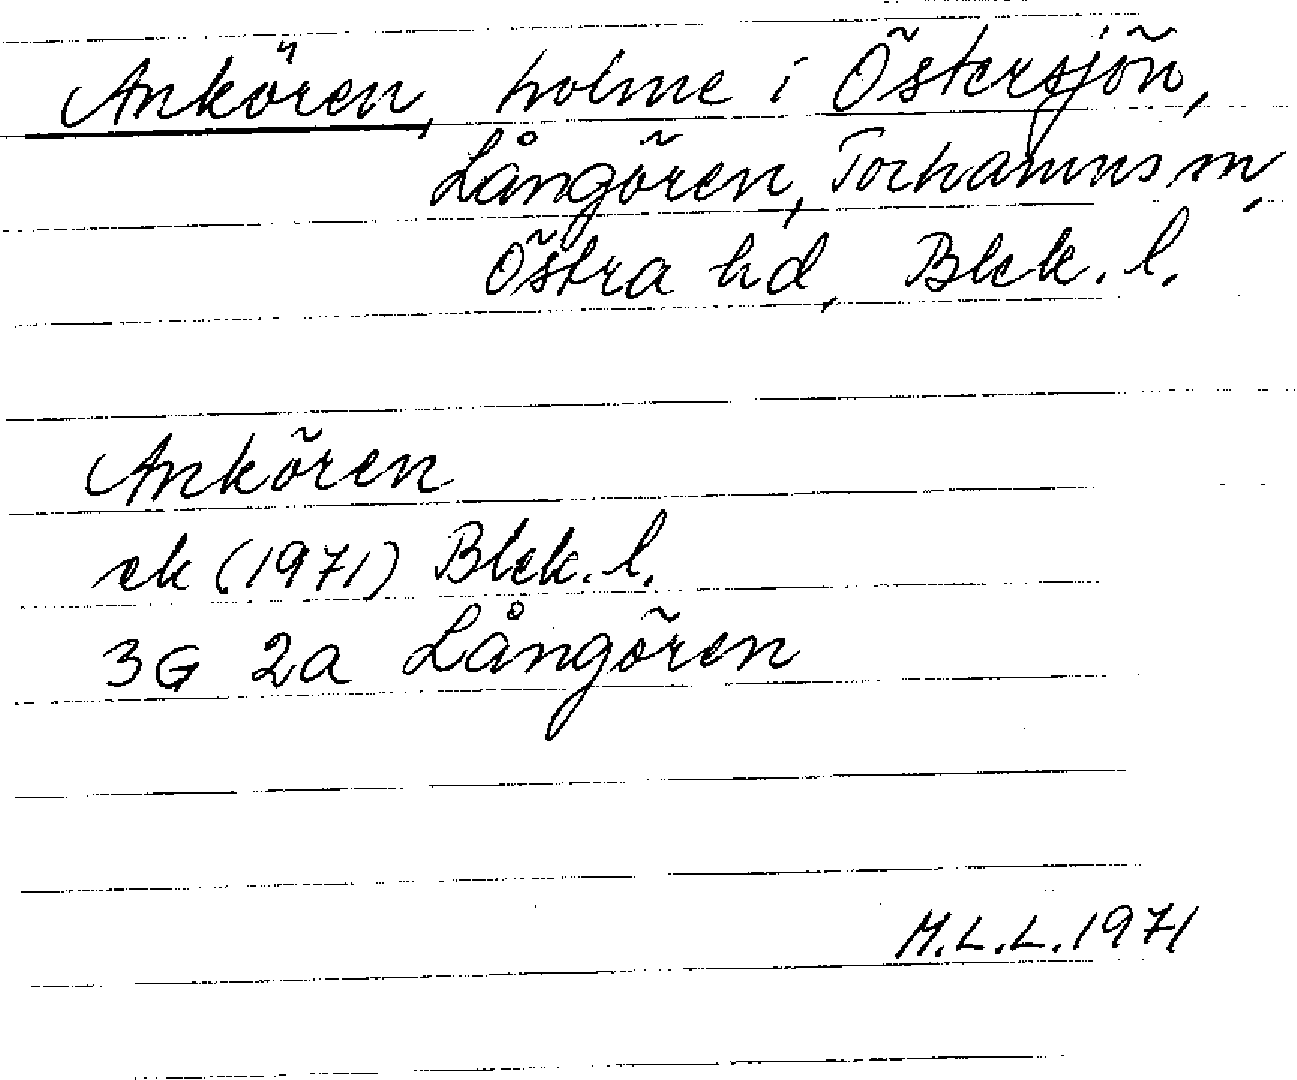 Ankören, holme i Östersjön,
Långören, Torhamns sn,
Östra hd, Blek. l.
Ankören
ek (1971) Blek. l.
3G 2a Långören
M.L.L. 1971